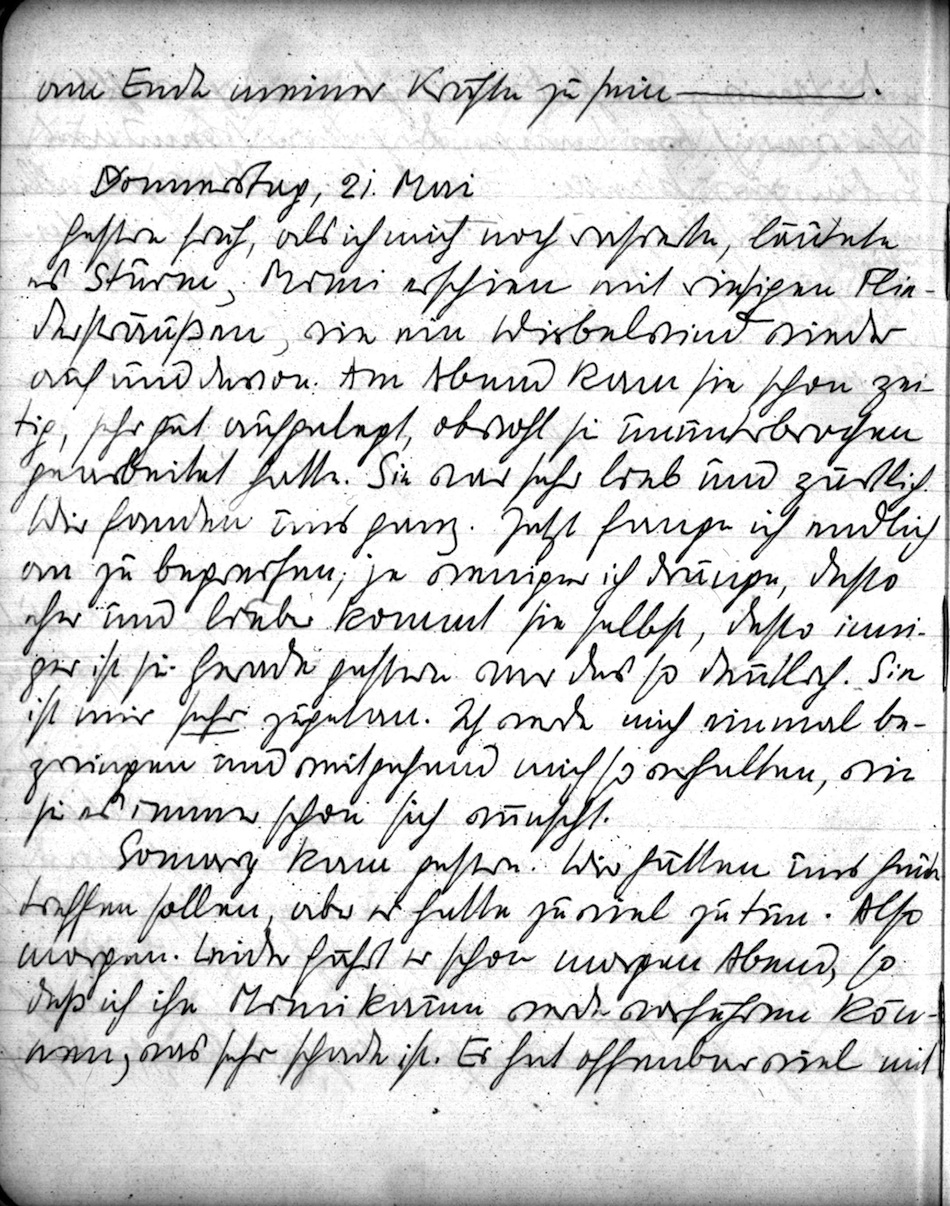 am Ende meiner Kräfte zu sein —.
Donnerstag, 21. Mai
Gestern früh, als ich mich noch rasierte, läutete
es Sturm, Mimi erschien mit riesigen Flie-
dersträußen, wie ein Wirbelwind wieder
auf und davon. Am Abend kam sie schon zei-
tig, sehr gut aufgelegt, obwohl sie ununterbrochen
gearbeitet hatte. Sie war sehr lieb und zärtlich.
Wir fanden uns ganz. Jetzt fange ich endlich
an zu begreifen, je weniger ich dränge, desto
eher und lieber kommt sie selbst, desto inni-
ger ist sie. Gerade gestern war das so deutlich. Sie
ist mir sehr zugetan. Ich werde mich einmal be-
zwingen und mich so verhalten, wie
sie es immer schon sich wünscht.
kam gestern. Wir hätten uns heute
treffen sollen, aber er hatte zuviel zu tun. Also
morgen. Leider fährt er schon morgen Abend, so
daß ich ihm Mimi kaum werde vorführen kön-
nen, was sehr schade ist. Er hat offenbar viel mit